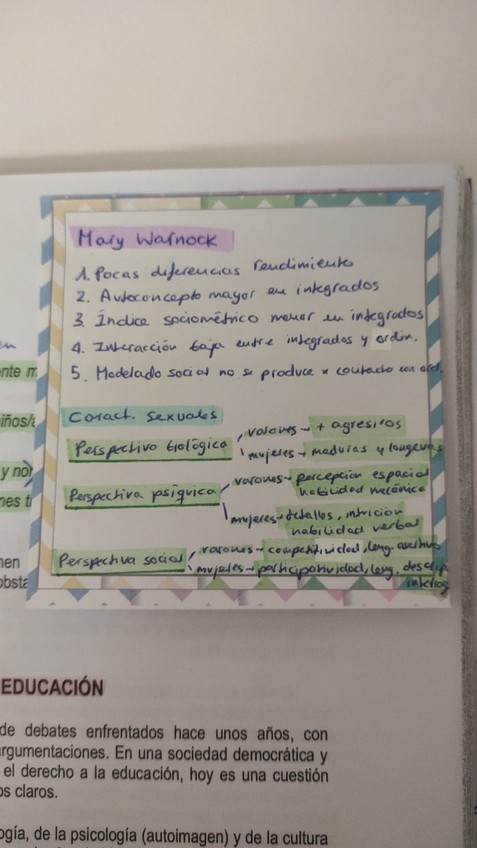 Mary Warnock
1. Pocas diferencias rendimiento
2. Autoconcepto mayor en integrados
3. Índice sociométrico menor en integrados
4. Interacción baja entre integrados y ordin.
5. Modelado social no se produce x contacto con ord.
Caract. sexuales
Perspectiva biológica
varones → + agresivos
mujeres → maduras y longevas
Perspectiva psíquica
varones → percepción espacial
habilidad mecánica
mujeres → detalles, intuición
habilidad verbal
Perspectiva social
varones → competitividad, leng. asertivo
mujeres → participatividad, leng. descrip.
interrog
nte m
iños/a
y no
nes ti
nen
obsta
EDUCACIÓN
de debates enfrentados hace unos años, con
rgumentaciones. En una sociedad democrática y
el derecho a la educación, hoy es una cuestión
os claros.
ogía, de la psicología (autoimagen) y de la cultura